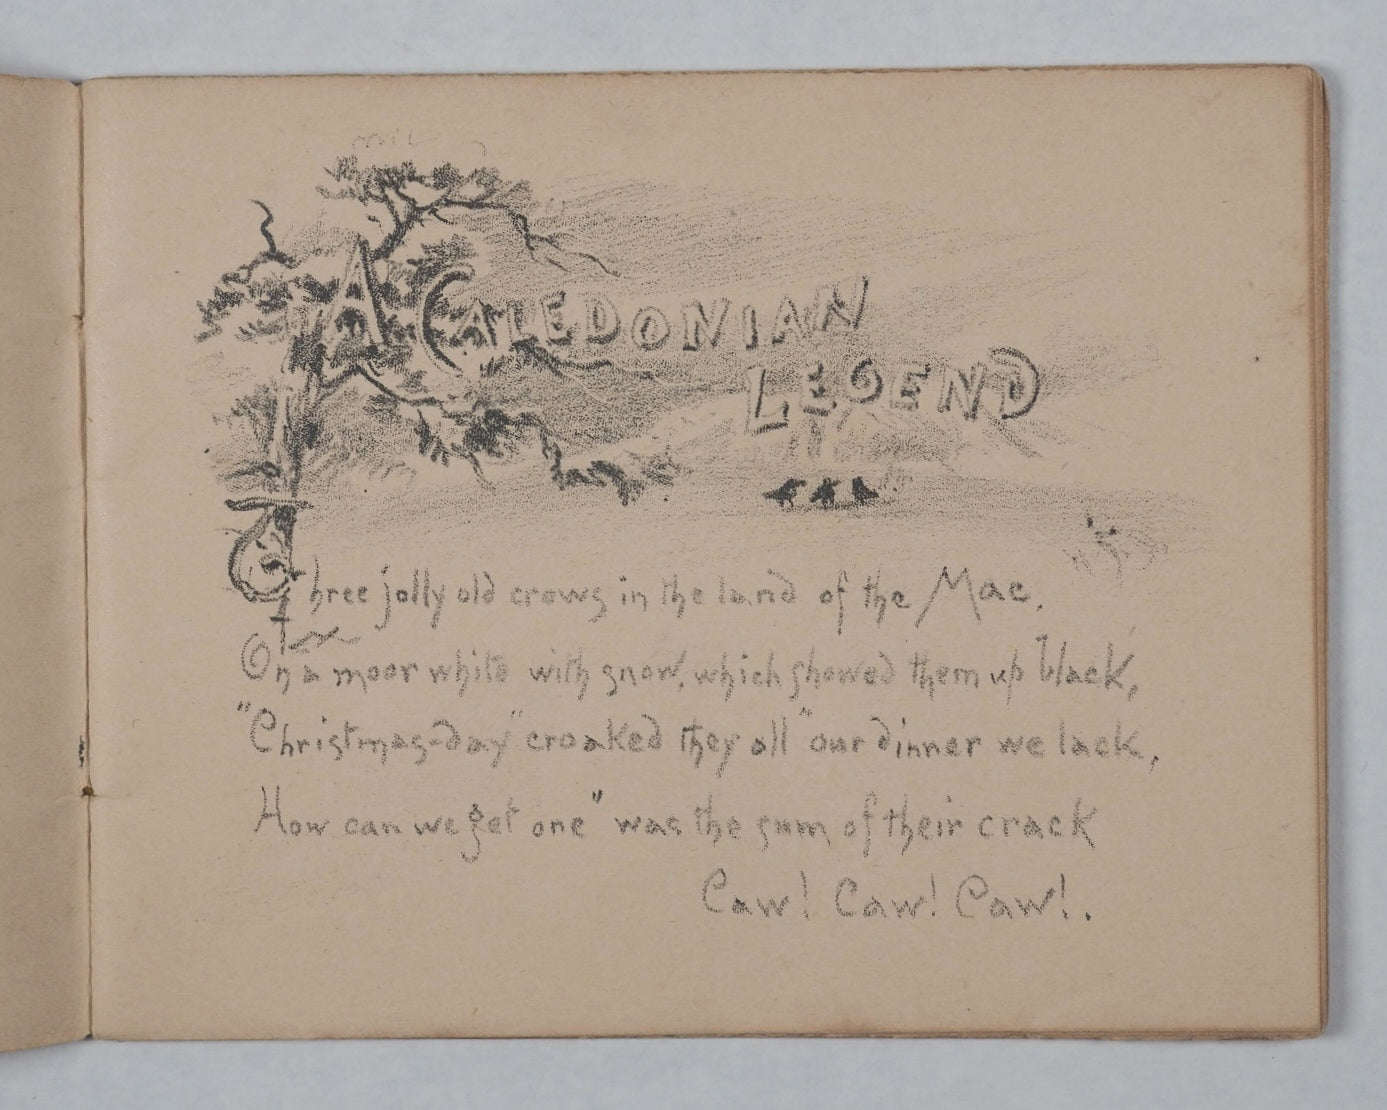 A CALEDONIAN
LEGEND
Three jolly old crows in the land of the Mac,
On a moor white with snow, which showed them up black,
"Christmas-day" croaked they all "our dinner we lack,
How can we get one" was the sum of their crack
Caw! Caw! Caw!.